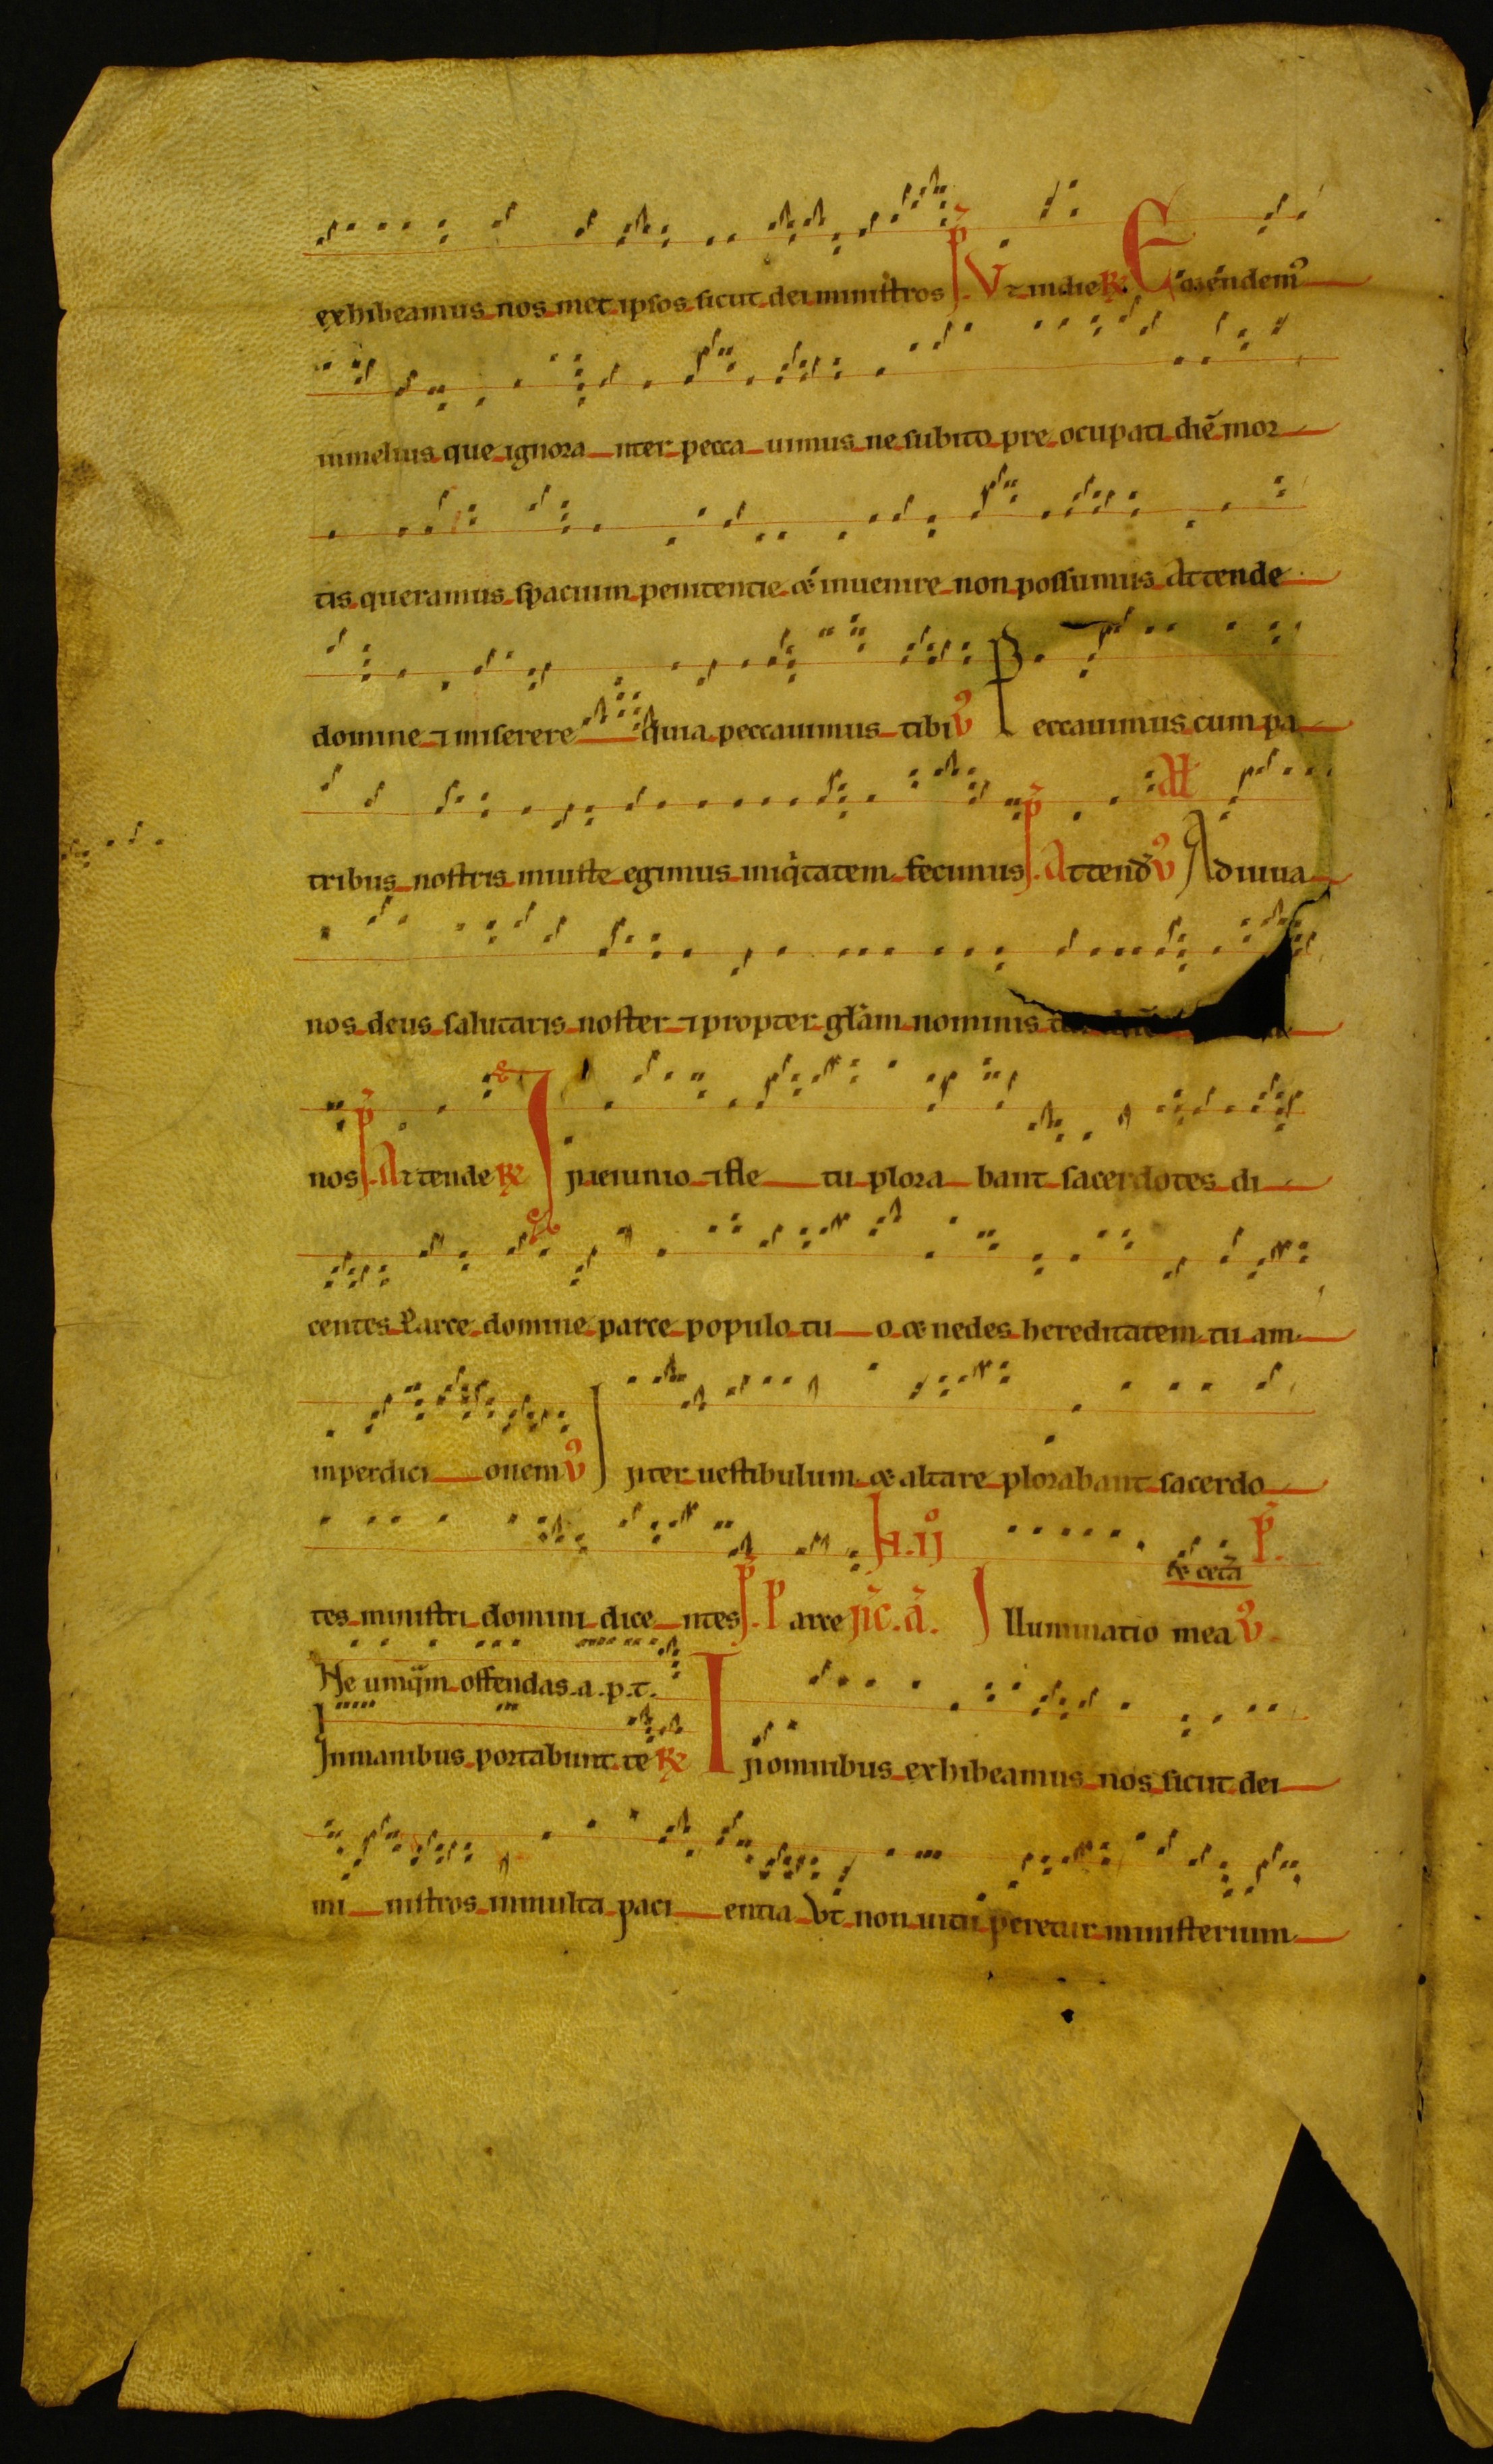 exhibeamus nos met ipsos sicut dei ministros p̄ Vt in die R̃. Emendem9
in melius que ignora nter pecca uimus ne subito pre ocupati diē mor
tis queramus spacium penitentie & inuenire non possumus Attende
domine ⁊ miserere quia peccauimus tibi V̉ Peccauimus cum pa
tribus nostris iniuste egimus iniq̇tatem fecimus p̄. Attend̄ V̉ Adiuua
at
nos deus salutaris noster ⁊ propter gl̄am nominis
nos p̄. Attende R̃ In ieiunio ⁊ fle tu plora bant sacerdotes di
centes Parce domine parce populo tu o & nedes hereditatem tu am
in perdici onem V̉ Inter uestibulum & altare plorabant sacerdo
tes ministri domini dice ntes p̄. Parce In̄c. ā. Illuminatio mea V̉.
H. ij & cet̄a P̄.
Ne umq̄m offendas. a. p. t.
In manibus portabunt te R̃ In omnibus exhibeamus nos sicut dei
mi nistros in multa paci entia Vt non uitu peretur ministerium